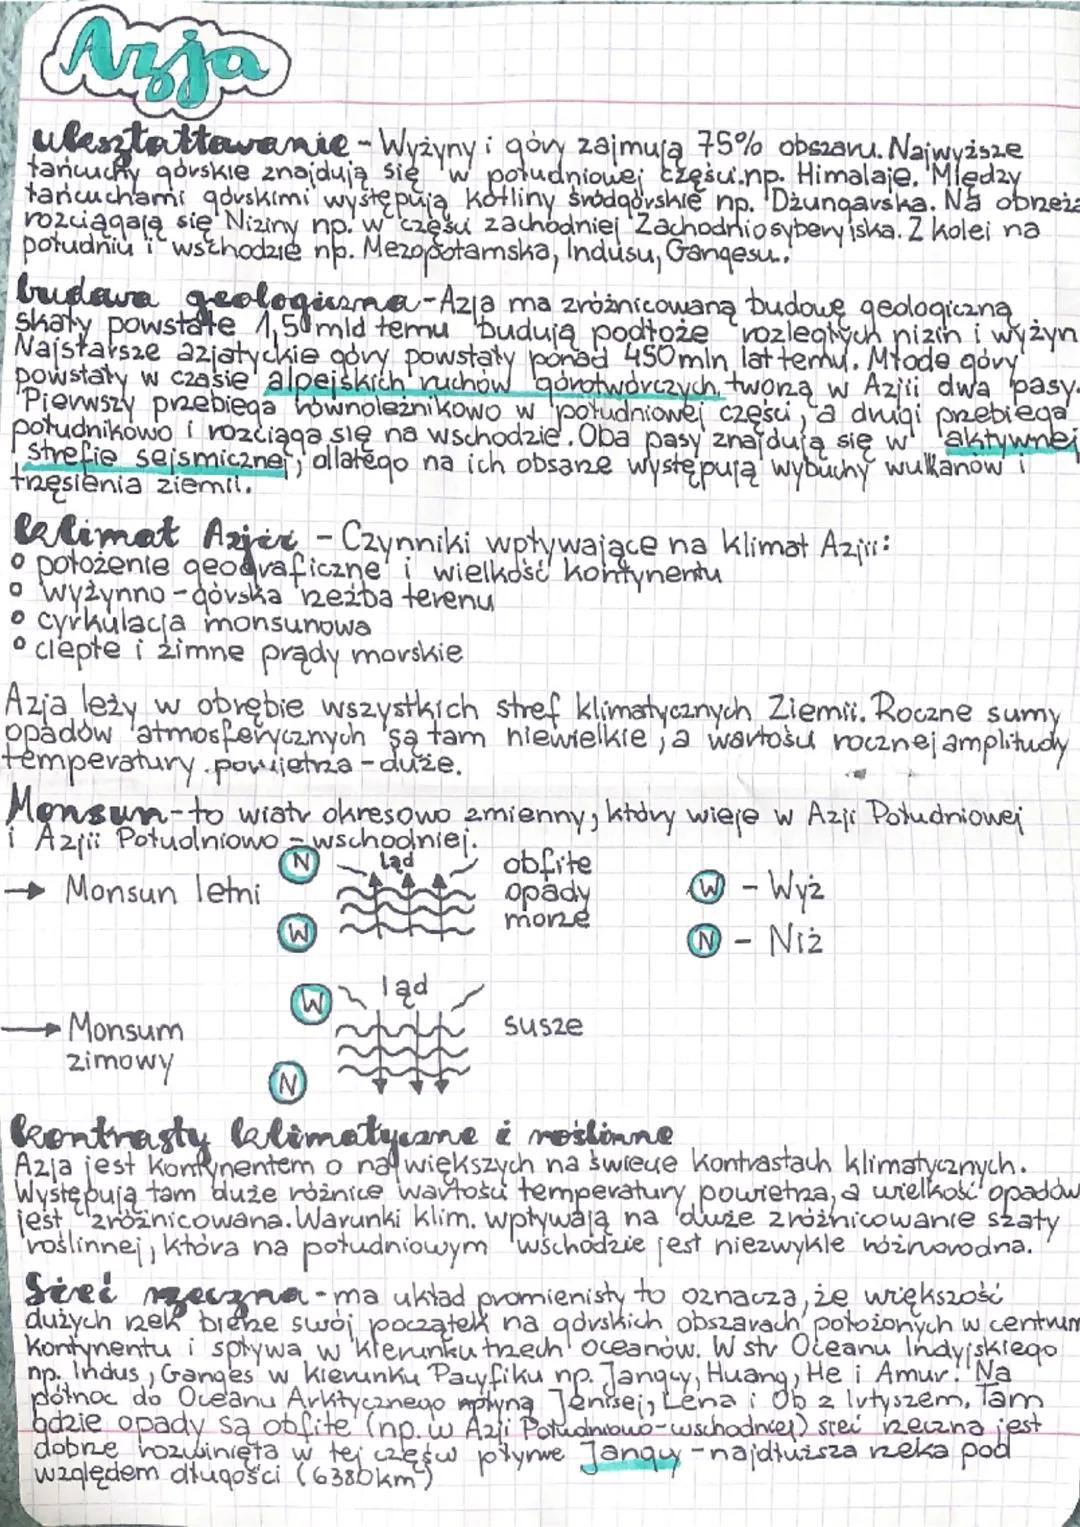 Azja
ukształtowanie - Wyżyny i góry zajmują 75% obszaru. Najwyższe
łańcuchy górskie znajdują się w południowej części.np. Himalaje. Między
łańcuchami górskimi występują kotliny śródgórskie np. Dżungarska. Na obrzeża
rozciągają się Niziny np. w części zachodniej Zachodniosyberyjska. Z kolei na
południu i wschodzie np. Mezopotamska, Indusu, Gangesu..
budowa geologiczna - Azja ma zróżnicowaną budowę geologiczną
skały powstałe 1,50 mld temu budują podłoże rozległych nizin i wyżyn
Najstarsze azjatyckie góry powstały ponad 450 mln lat temu. Młode góry
powstały w czasie alpejskich ruchów górotwórczych tworzą w Azjii dwa pasy.
Pierwszy przebiega równoleżnikowo w południowej części, a drugi przebiega
południkowo i rozciąga się na wschodzie. Oba pasy znajdują się w aktywnej
strefie sejsmicznej, dlatego na ich obsarze występują wybuchy wulkanów i
trzęsienia ziemii.
klimat Azjii - Czynniki wpływające na klimat Azjii:
° położenie geograficzne i wielkość kontynentu
° wyżynno - górska rzeźba terenu
° cyrkulacja monsunowa
° ciepłe i zimne prądy morskie
Azja leży w obrębie wszystkich stref klimatycznych Ziemii. Roczne sumy
opadów atmosferycznych są tam niewielkie, a wartości rocznej amplitudy
temperatury powietrza - duże.
Monsun - to wiatr okresowo zmienny, który wieje w Azji Południowej
i Azjii Południowo - wschodniej.
→ Monsun letni
N
W
ląd
obfite
opady
morze
W - Wyż
N - Niż
→ Monsum
zimowy
W
N
ląd
susze
kontrasty klimatyczne i roślinne
Azja jest kontynentem o największych na świecie kontrastach klimatycznych.
Występują tam duże różnice wartości temperatury powietrza, a wielkość opadów
jest zróżnicowana. Warunki klim. wpływają na duże zróżnicowanie szaty
roślinnej, która na południowym wschodzie jest niezwykle różnorodna.
Sieć rzeczna - ma układ promienisty to oznacza, że większość
dużych rzek bierze swój początek na górskich obszarach położonych w centrum
kontynentu i spływa w kierunku trzech oceanów. W str Oceanu Indyjskiego
np. Indus, Ganges w kierunku Pacyfiku np. Jangcy, Huang, He i Amur. Na
północ do Oceanu Arktycznego płyną Jenisej, Lena i Ob z Irtyszem. Tam
gdzie opady są obfite (np. w Azji Południowo-wschodniej) sieć rzeczna jest
dobrze rozwinięta w tej części płynie Jangcy - najdłuższa rzeka pod
względem długości (6380km)